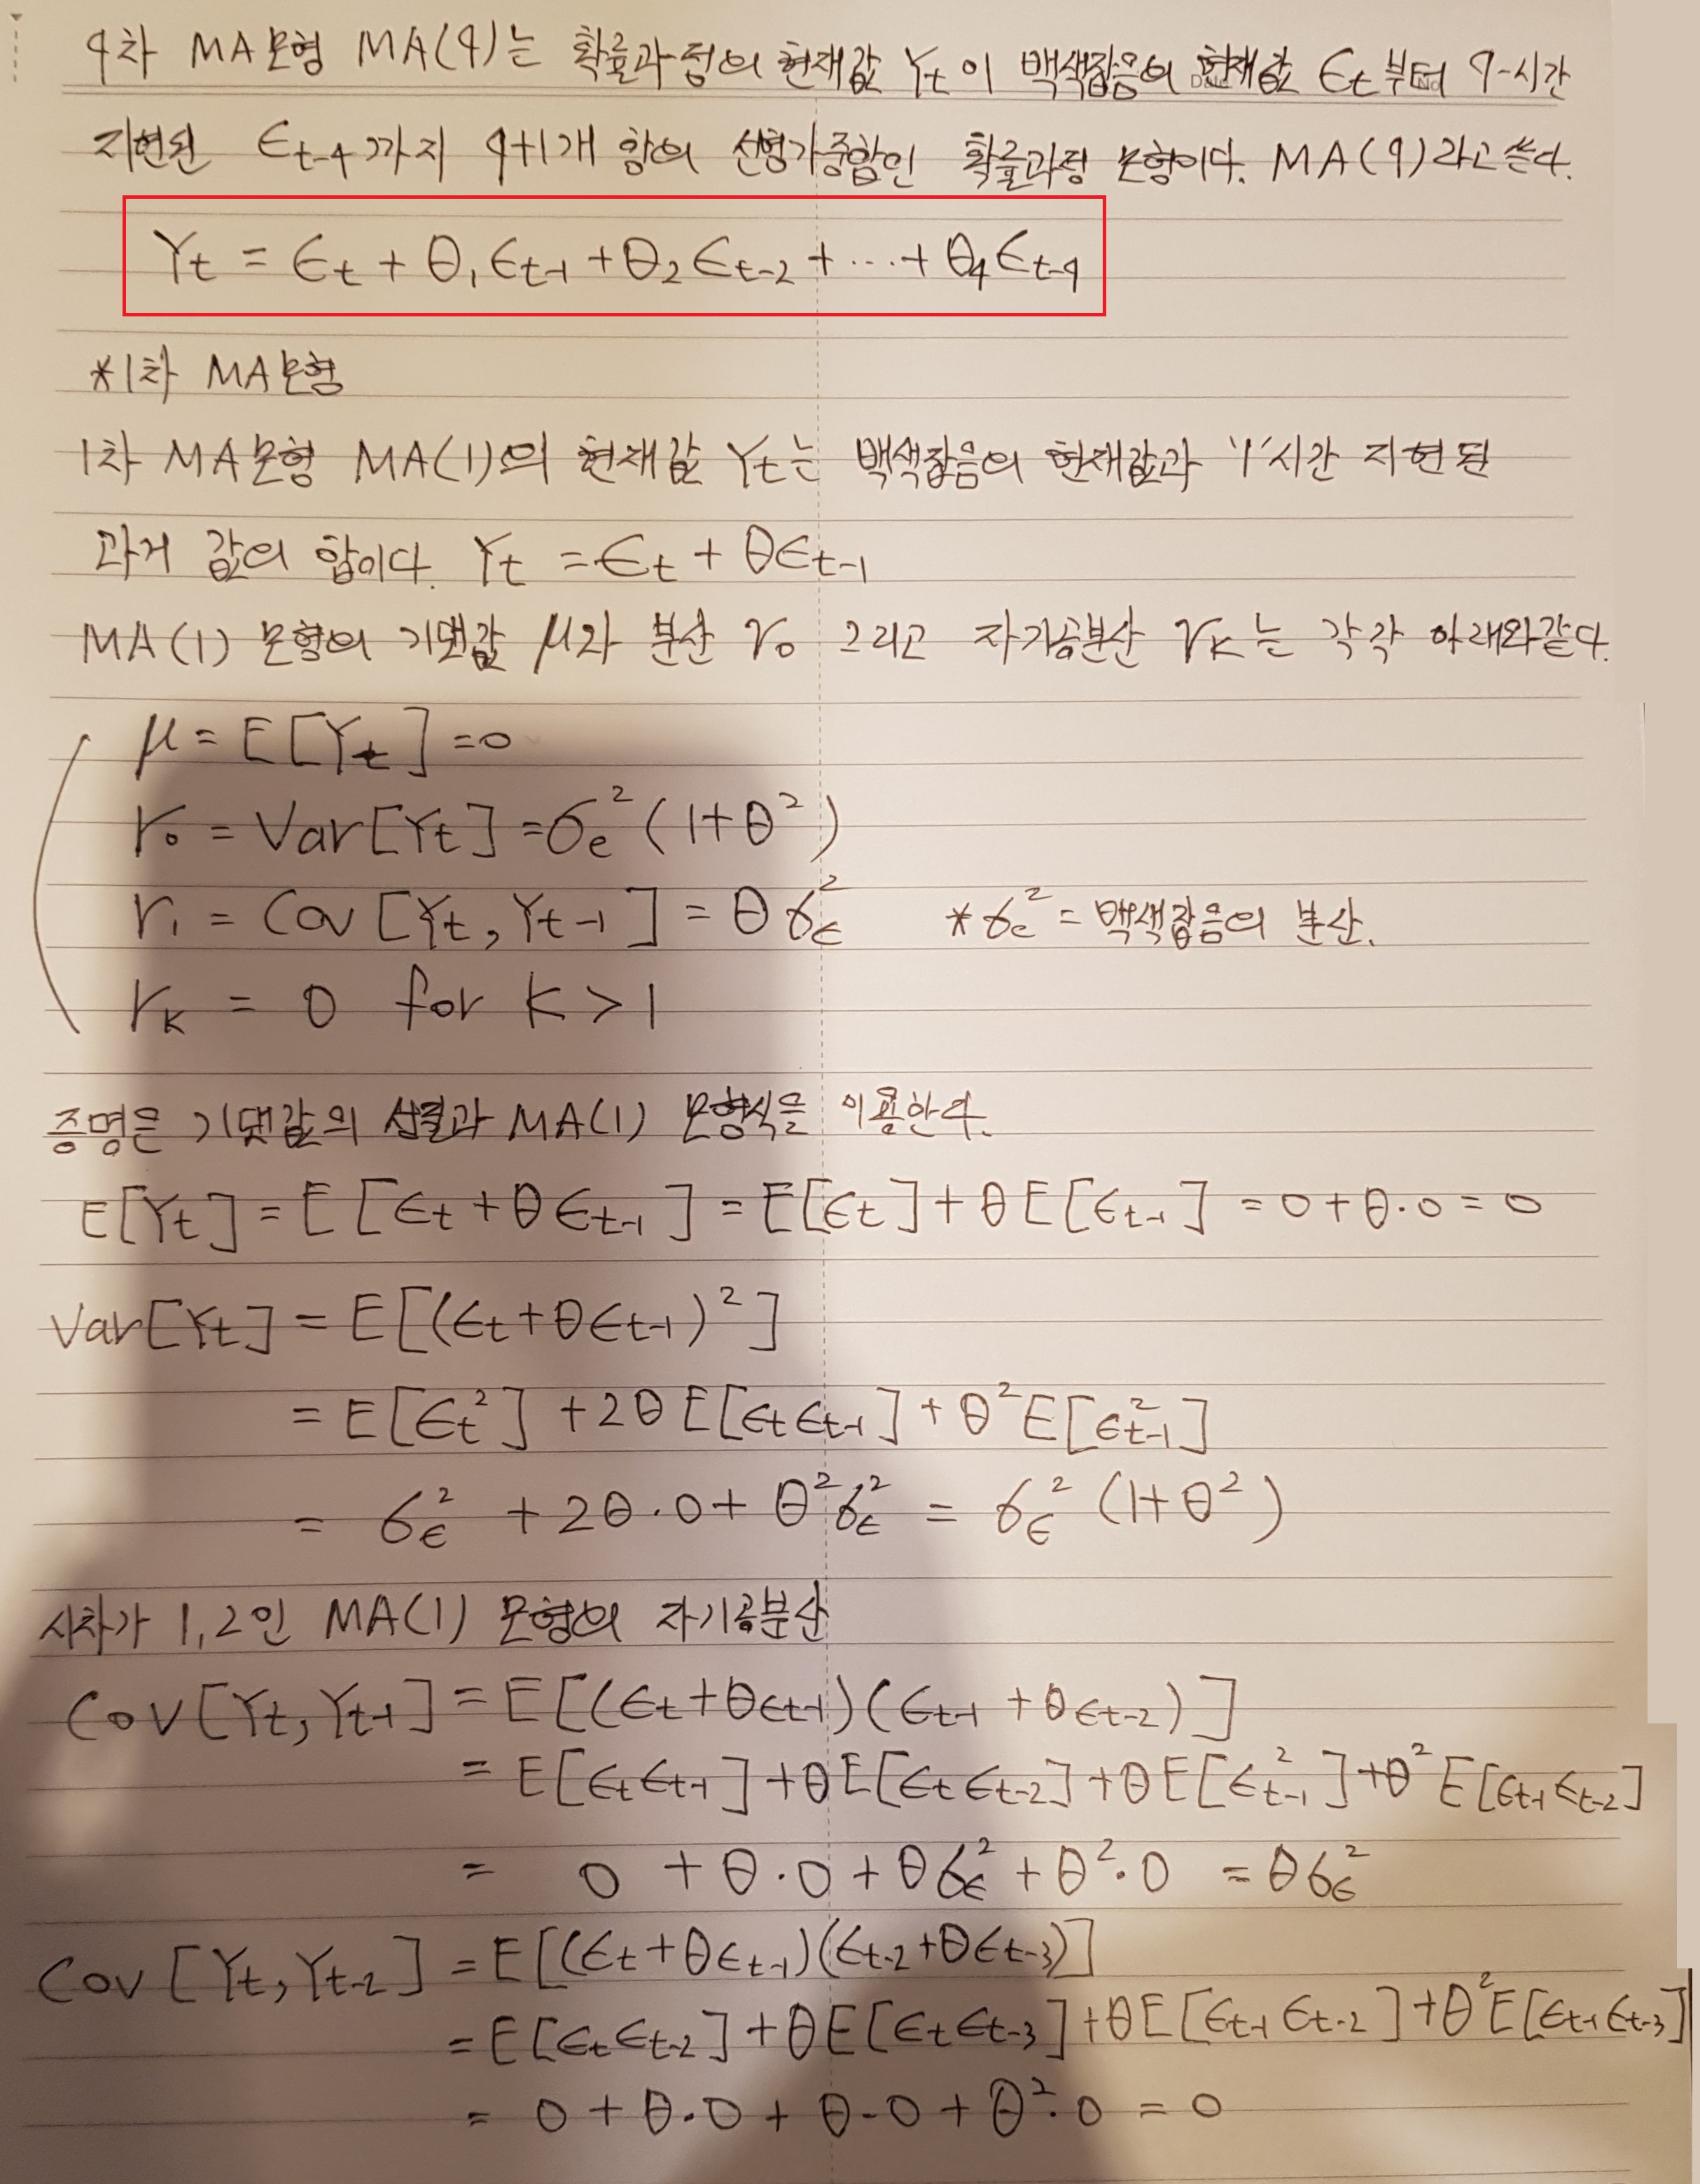 q차 MA모형 MA(q)는 확률과정의 현재값 Yt이 백색잡음의 현재값 ϵt부터 q-시간
지연된 ϵt-q까지 q+1개 항의 선형가중합인 확률과정 모형이다. MA(q)라고 쓴다.
Yt = ϵt + θ₁ϵt-1 + θ₂ϵt-2 + ... + θqϵt-q
*1차 MA모형
1차 MA모형 MA(1)의 현재값 Yt는 백색잡음의 현재값과 '1'시간 지현된
과거 값의 합이다. Yt = ϵt + θϵt-1
MA(1) 모형의 기댓값 μ와 분산 r₀ 그리고 자기공분산 rk는 각각 아래와같다.
μ = E[Yt] = 0
r₀ = Var[Yt] = σe²(1+θ²)
r₁ = Cov[Yt, Yt-1] = θσϵ² *σe² = 백색잡음의 분산.
rk = 0 for k > 1
증명은 기댓값의 성질과 MA(1) 모형식을 이용한다.
E[Yt] = E[ϵt + θϵt-1] = E[ϵt] + θE[ϵt-1] = 0 + θ·0 = 0
Var[Yt] = E[(ϵt + θϵt-1)²]
= E[ϵt²] + 2θE[ϵtϵt-1] + θ²E[ϵt-1²]
= σϵ² + 2θ·0 + θ²σϵ² = σϵ²(1+θ²)
시차가 1,2인 MA(1) 모형의 자기공분산
Cov[Yt, Yt-1] = E[(ϵt + θϵt-1)(ϵt-1 + θϵt-2)]
= E[ϵtϵt-1] + θE[ϵtϵt-2] + θE[ϵt-1²] + θ²E[ϵt-1ϵt-2]
= 0 + θ·0 + θσϵ² + θ²·0 = θσϵ²
Cov[Yt, Yt-2] = E[(ϵt + θϵt-1)(ϵt-2 + θϵt-3)]
= E[ϵtϵt-2] + θE[ϵtϵt-3] + θE[ϵt-1ϵt-2] + θ²E[ϵt-1ϵt-3]
= 0 + θ·0 + θ·0 + θ²·0 = 0